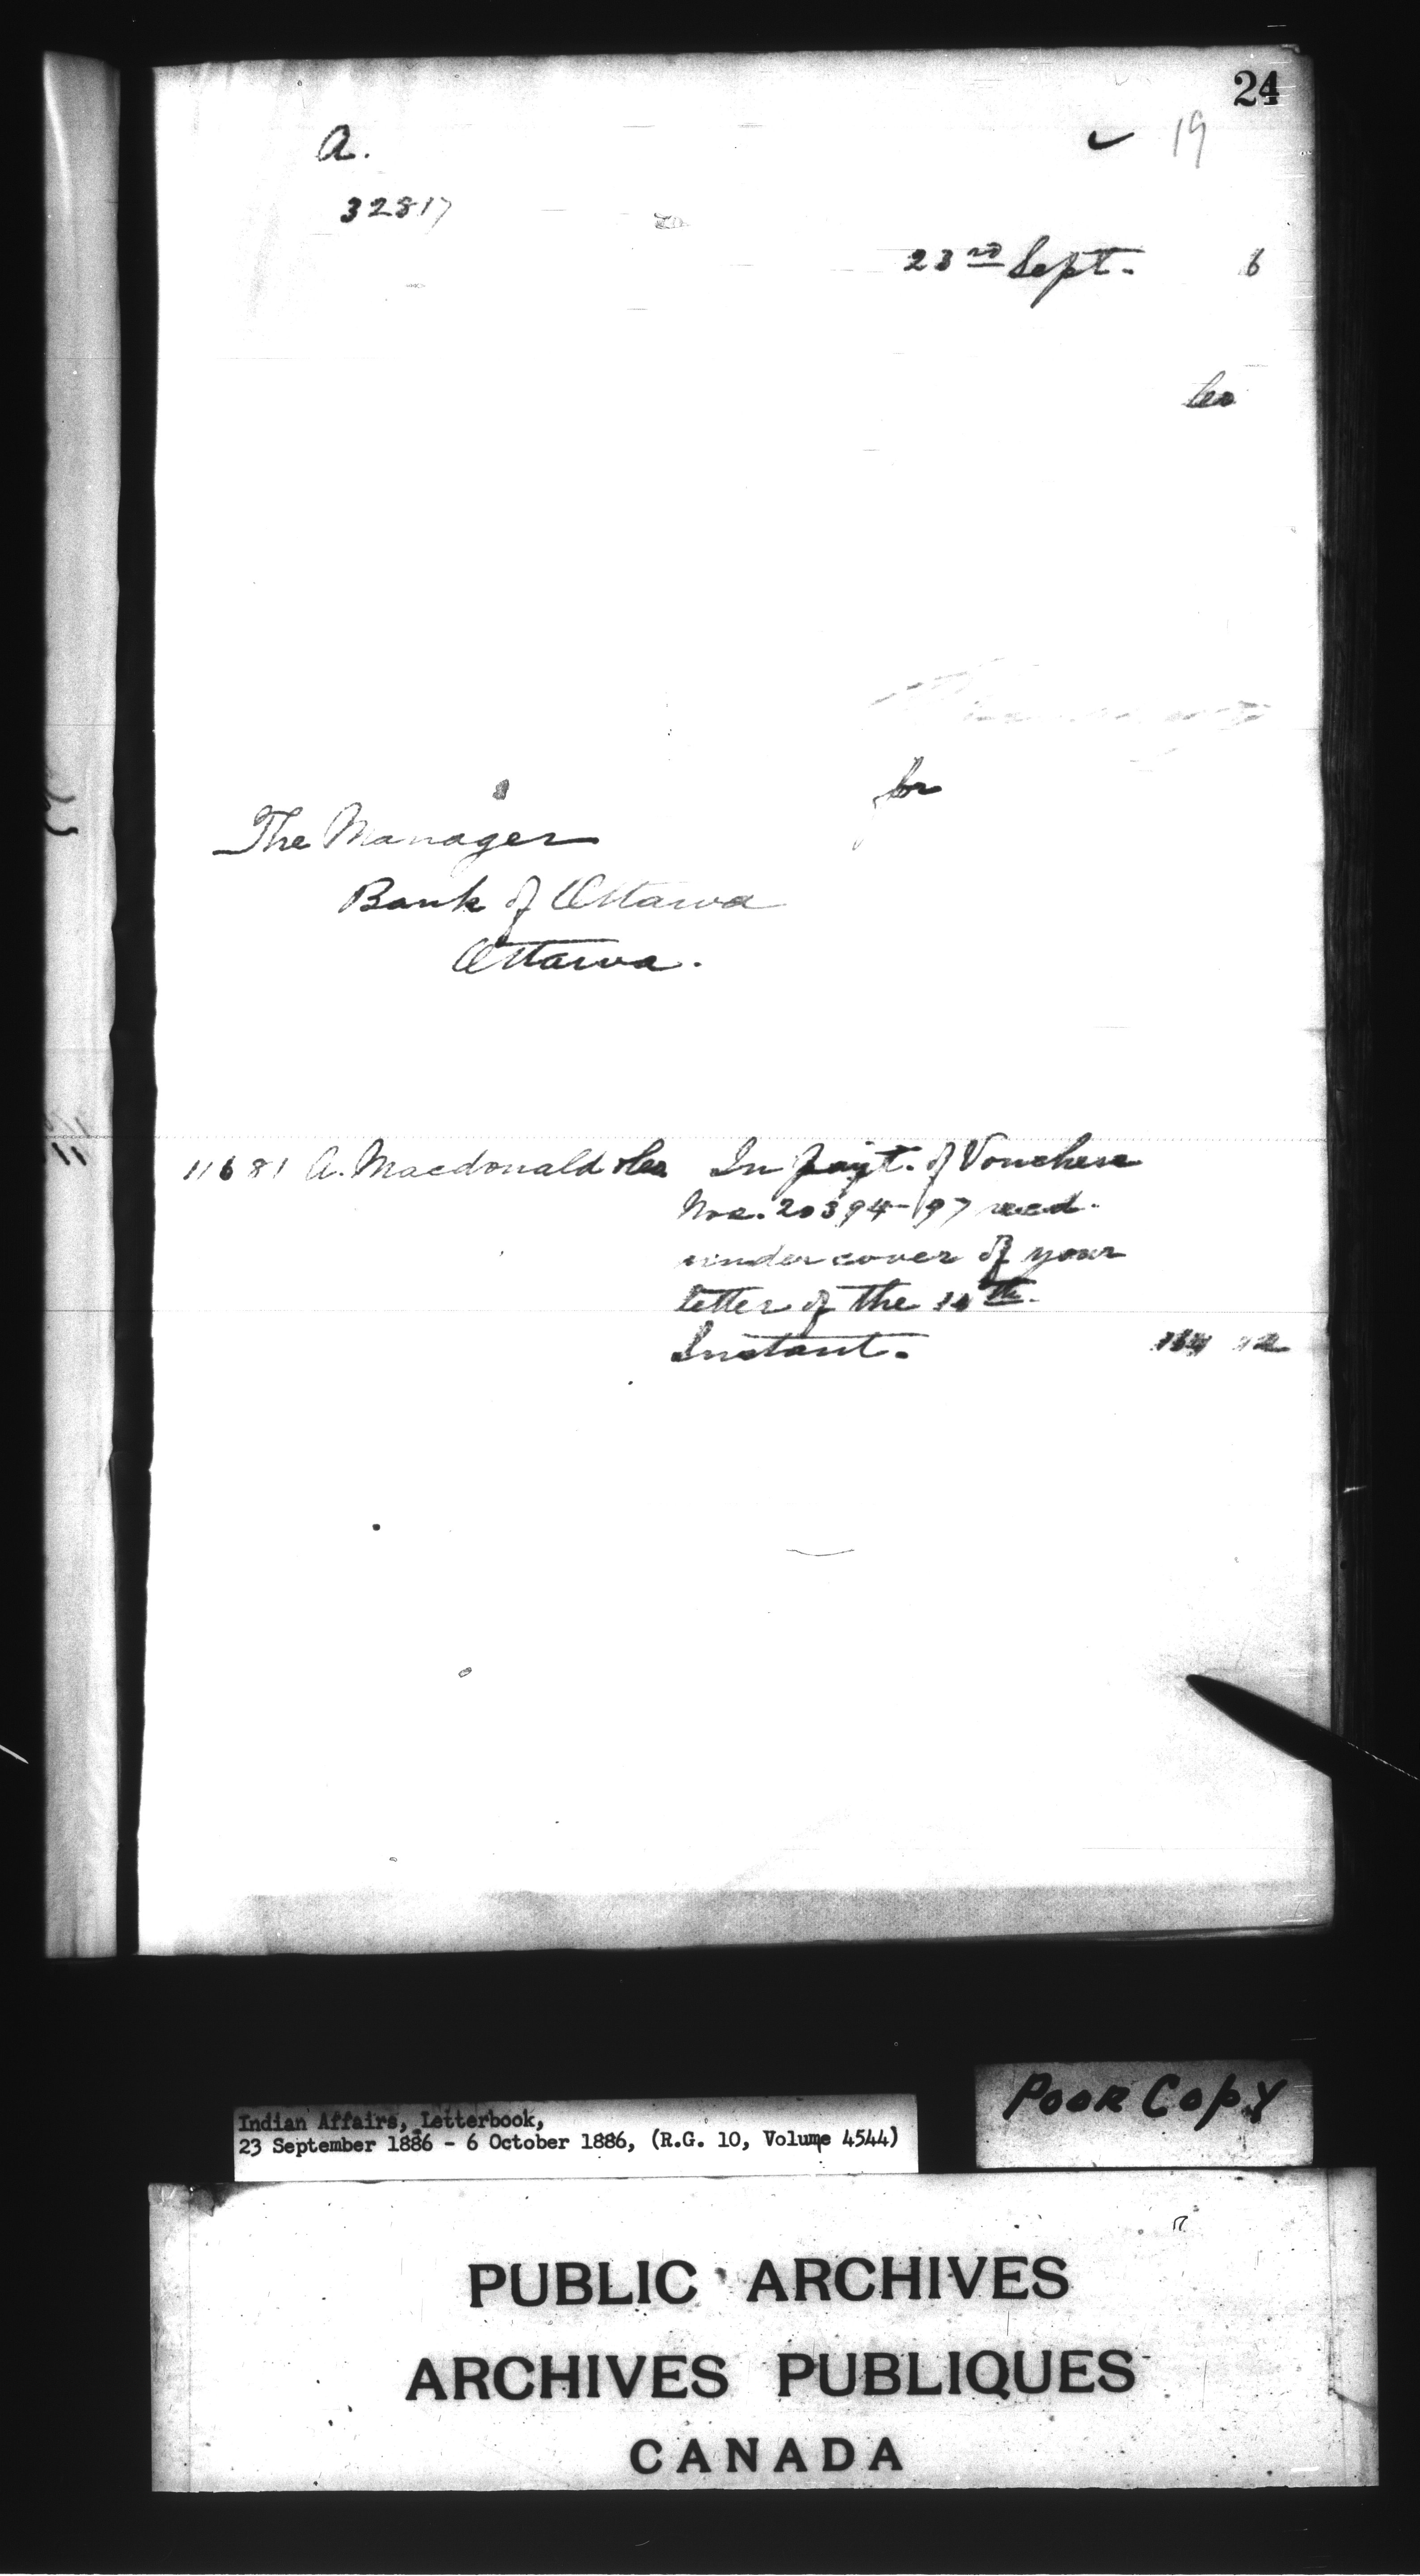 24
19
A.
32817
23rd Sept. 6
for
The Manager
Bank of Ottawa
Ottawa.
11681 A. Macdonald &Co In payt. of Vouchers
Nos. 20394-97 recd.
under cover of your
letter of the
Instant.
Poor Copy
Indian Affairs, Letterbook,
23 September 1886 - 6 October 1886, (R.G. 10, Volume 4544)
PUBLIC ARCHIVES
ARCHIVES PUBLIQUES
CANADA